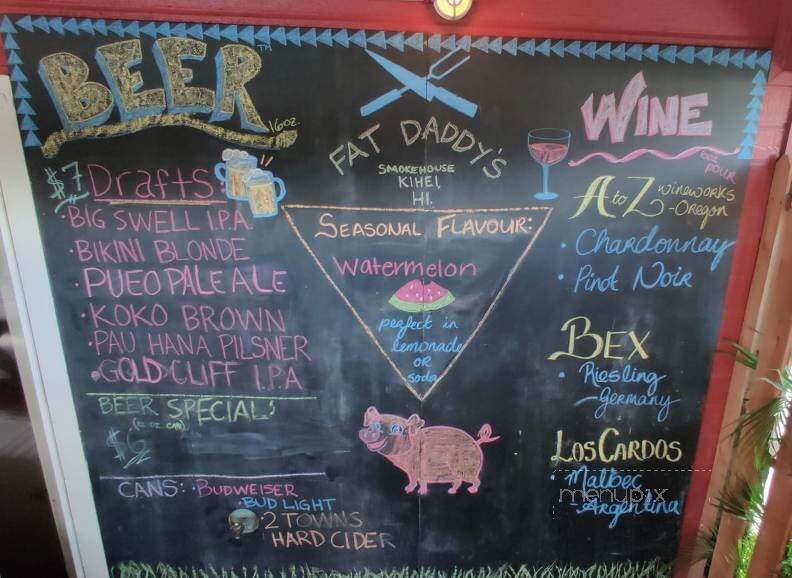 BEER™
16oz.
$7 Drafts:
• BIG SWELL I.P.A.
• BIKINI BLONDE
• PUEO PALE ALE
• KOKO BROWN
• PAU HANA PILSNER
• GOLD CLIFF I.P.A
BEER SPECIAL:
(12 OZ. CAN)
$6
CANS: • BUDWEISER
• BUD LIGHT
• 2 TOWNS
HARD CIDER
FAT DADDY'S
SMOKEHOUSE
KIHEI,
HI.
SEASONAL FLAVOUR:
Watermelon
perfect in
lemonade
OR
soda
WINE
6oz
POUR
A to Z WINEWORKS
-OREGON
• Chardonnay
• Pinot Noir
BEX
• Riesling
-Germany
LOS CARDOS
• Malbec
-Argentina
menupix